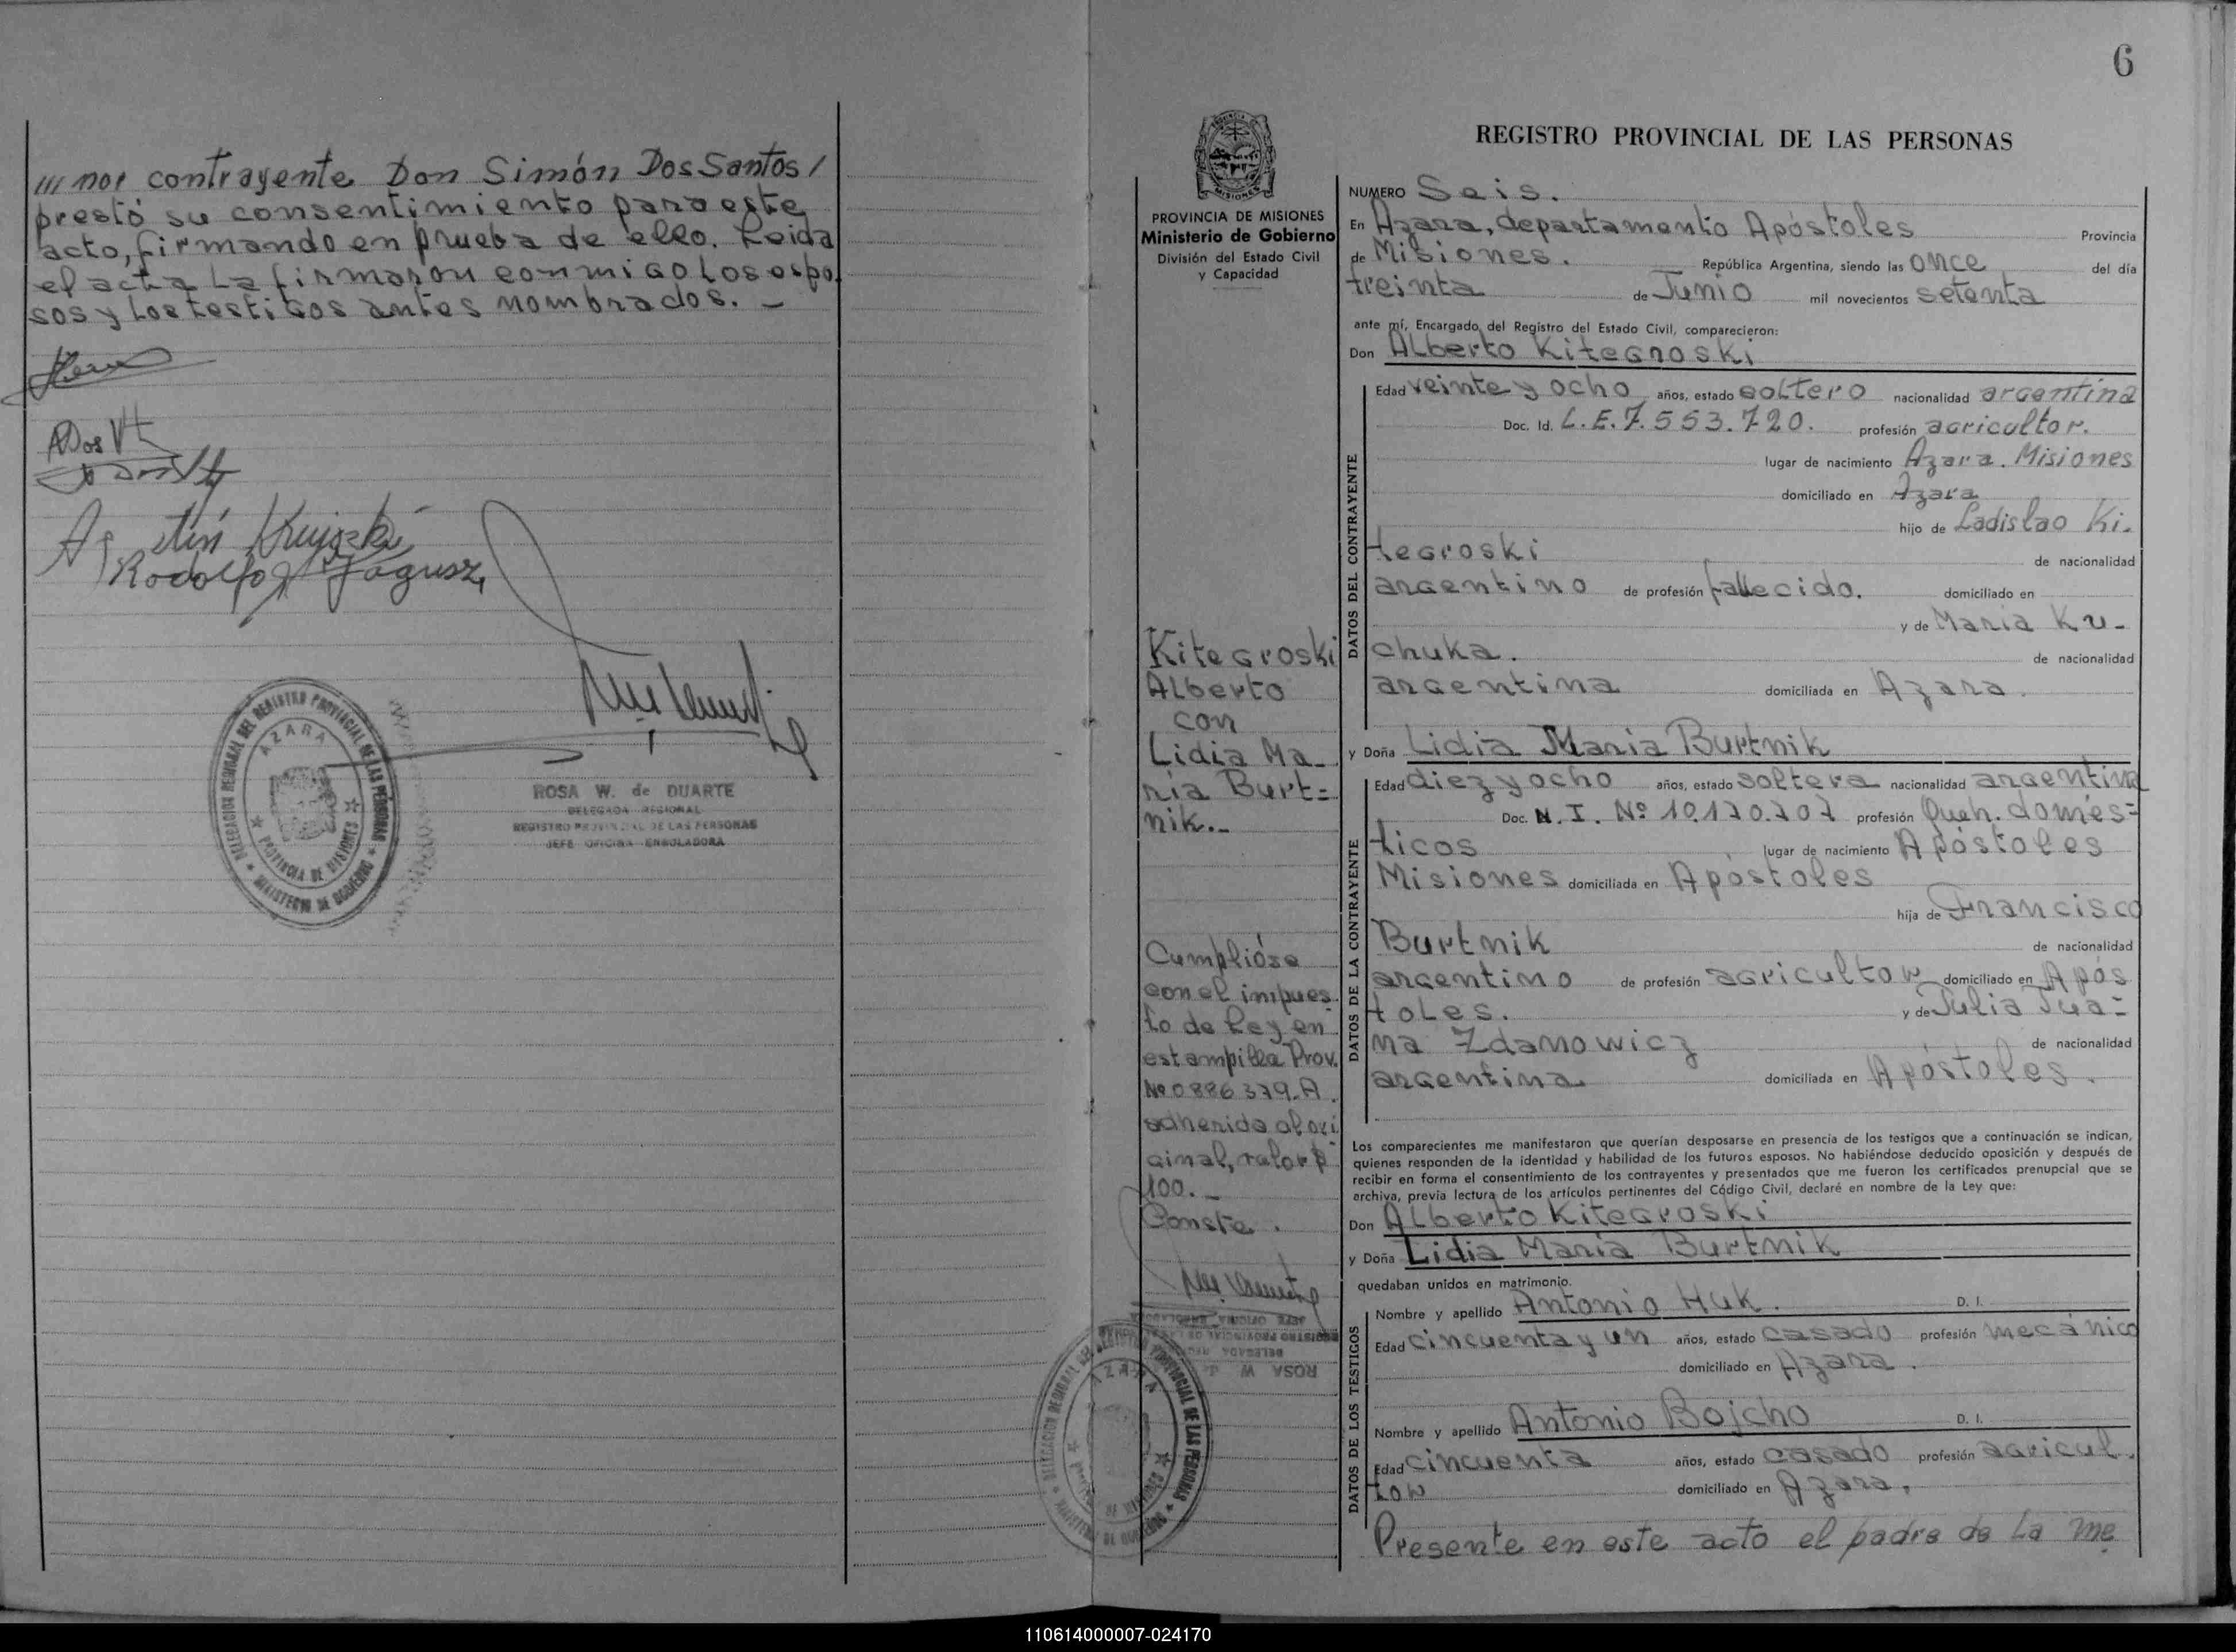 /// nor contrayente Don Simón Dos Santos /
prestó su consentimiento para este
acto, firmando en prueba de ello. Leida
el acta la firmaron conmigo los espo
sos y los testigos antes nombrados. _
Rodolfo Jagusz
DELEGACION REGIONAL DEL REGISTRO PROVINCIAL DE LAS PERSONAS
AZARA
PROVINCIA DE MISIONES
MINISTERIO DE GOBIERNO
ROSA W. de DUARTE
DELEGADA REGIONAL
REGISTRO PROVINCIAL DE LAS PERSONAS
JEFE OFICINA ENROLADORA
6
PROVINCIA DE MISIONES
Ministerio de Gobierno
División del Estado Civil
y Capacidad
Kitegroski
Alberto
con
Lidia Ma_
ria Burt=
nik._
Cumplióse
con el impues
to de Ley en
estampilla Prov.
Nº 0886379.A.
adherida al ori
ginal, valor $
100._
Conste.
REGISTRO PROVINCIAL DE LAS PERSONAS
NUMERO Seis.
En Azara, departamento Apóstoles Provincia
de Misiones. República Argentina, siendo las once del día
treinta de Junio mil novecientos setenta
ante mí, Encargado del Registro del Estado Civil, comparecieron:
Don Alberto Kitegroski
DATOS DEL CONTRAYENTE
Edad veinte y ocho años, estado soltero nacionalidad argentina
Doc. Id. L.E. 7.553.720. profesión agricultor.
lugar de nacimiento Azara. Misiones
domiciliado en Azara
hijo de Ladislao Ki.
tegroski de nacionalidad
argentino de profesión fallecido. domiciliado en
y de Maria Ku-
chuka. de nacionalidad
argentina domiciliada en Azara.
y Doña Lidia Maria Burtnik
DATOS DE LA CONTRAYENTE
Edad diez y ocho años, estado soltera nacionalidad argentina
Doc. N.I. Nº 10.170.707 profesión Queh. domes=
ticos lugar de nacimiento Apóstoles
Misiones domiciliada en Apóstoles
hija de Francisco
Burtnik de nacionalidad
argentino de profesión agricultor domiciliado en Após
toles. y de Julia Jua=
na Zdanowicz de nacionalidad
argentina domiciliada en Apóstoles.
Los comparecientes me manifestaron que querían desposarse en presencia de los testigos que a continuación se indican,
quienes responden de la identidad y habilidad de los futuros esposos. No habiéndose deducido oposición y después de
recibir en forma el consentimiento de los contrayentes y presentados que me fueron los certificados prenupcial que se
archiva, previa lectura de los artículos pertinentes del Código Civil, declaré en nombre de la Ley que:
Don Alberto Kitegroski
y Doña Lidia Maria Burtnik
quedaban unidos en matrimonio.
DATOS DE LOS TESTIGOS
Nombre y apellido Antonio Huk. D. I.
Edad cincuenta y un años, estado casado profesión mecánico
domiciliado en Azara.
Nombre y apellido Antonio Bojcho D. I.
Edad cincuenta años, estado casado profesión agricul.
tor domiciliado en Azara.
Presente en este acto el padre de la me
110614000007-024170